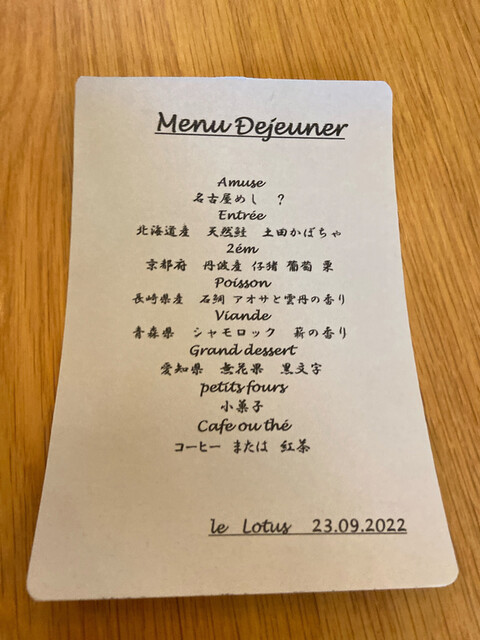 Menu Dejeuner
Amuse
名古屋めし ？
Entrée
北海道産 天然鮭 土田かぼちゃ
2ém
京都府 丹波産 仔猪 葡萄 栗
Poisson
長崎県産 石鯛 アオサと雲丹の香り
Viande
青森県 シャモロック 薪の香り
Grand dessert
愛知県 無花果 黒文字
petits fours
小菓子
Cafe ou thé
コーヒー または 紅茶
le Lotus 23.09.2022